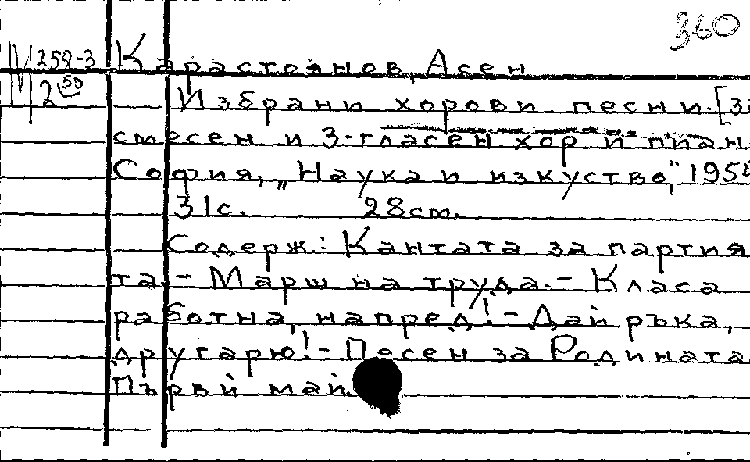 360
М 258-3 Карастоянов, Асен
М 2 50 Избрани хорови песни. [За
смесен и 3-гласен хор и пиан
София, „Наука и изкуство," 1954
31с. 28cm.
Содерж.: Кантата за партия
та.- Марш на труда.- Класа
работна, напред!- Дай ръка,
другарю!- Песен за Родината
Първи май